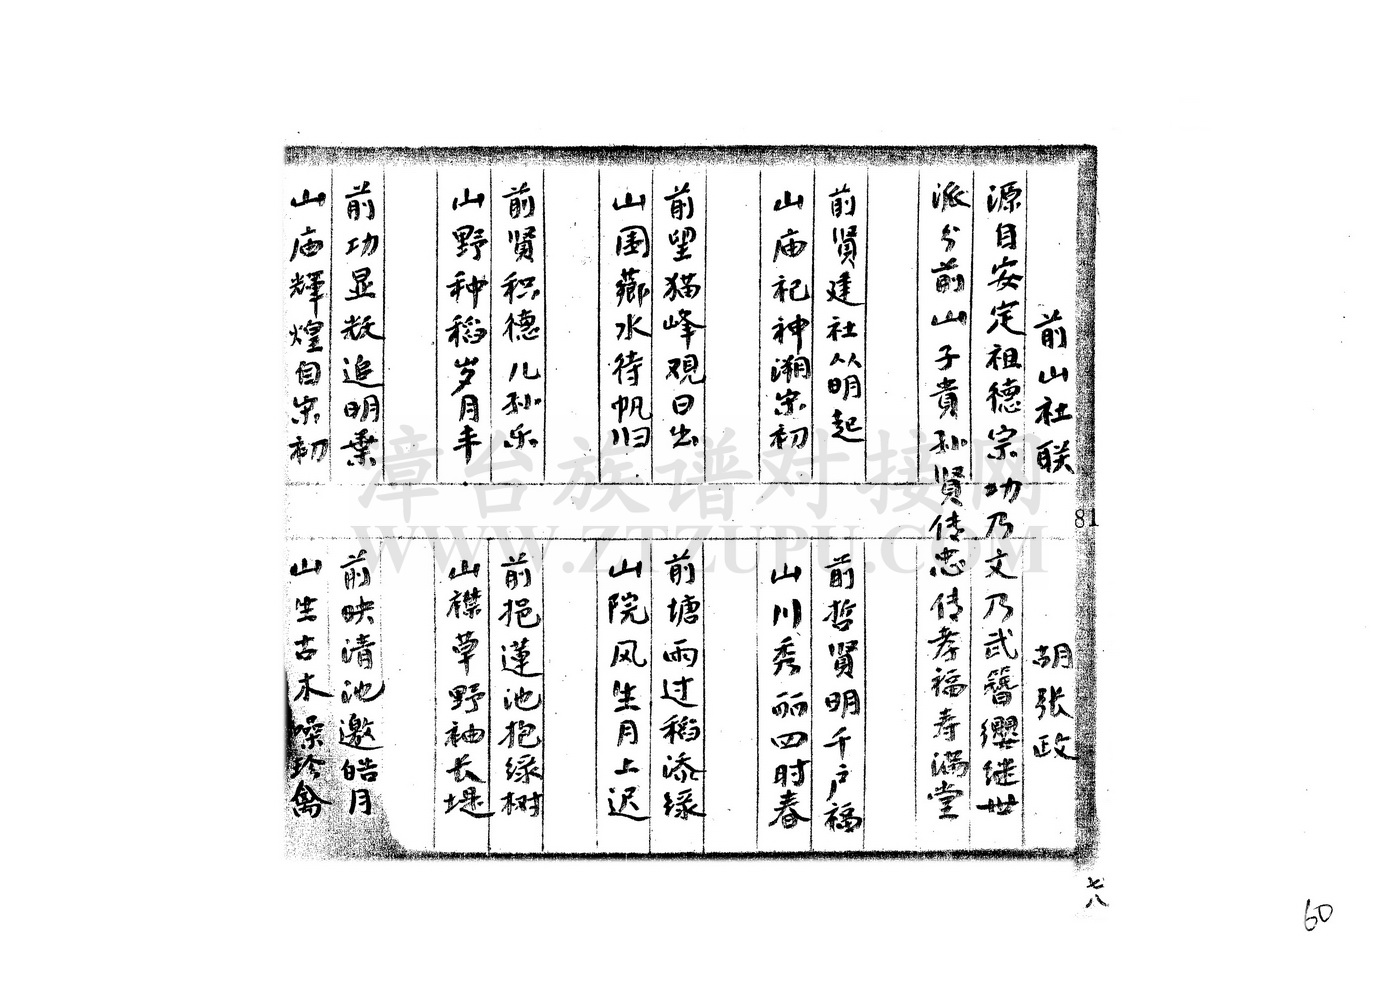 前山社联 胡张政
源自安定祖德宗功乃文乃武簪缨继世
派分前山子贵孙贤传忠传孝福寿满堂
前贤建社从明起
山庙祀神溯宋初
前哲贤明千户福
山川秀丽四时春
前望猫峰观日出
山围芗水待帆归
前塘雨过稻添绿
山院风生月上迟
前贤积德儿孙乐
山野种稻岁月丰
前挹莲池抱绿树
山襟草野袖长堤
前功显赵追明叶
山庙辉煌自宋初
前映清池邀皓月
山生古木噪珍禽
81
七八
60
漳台族谱对接网
WWW.ZTZUPU.COM